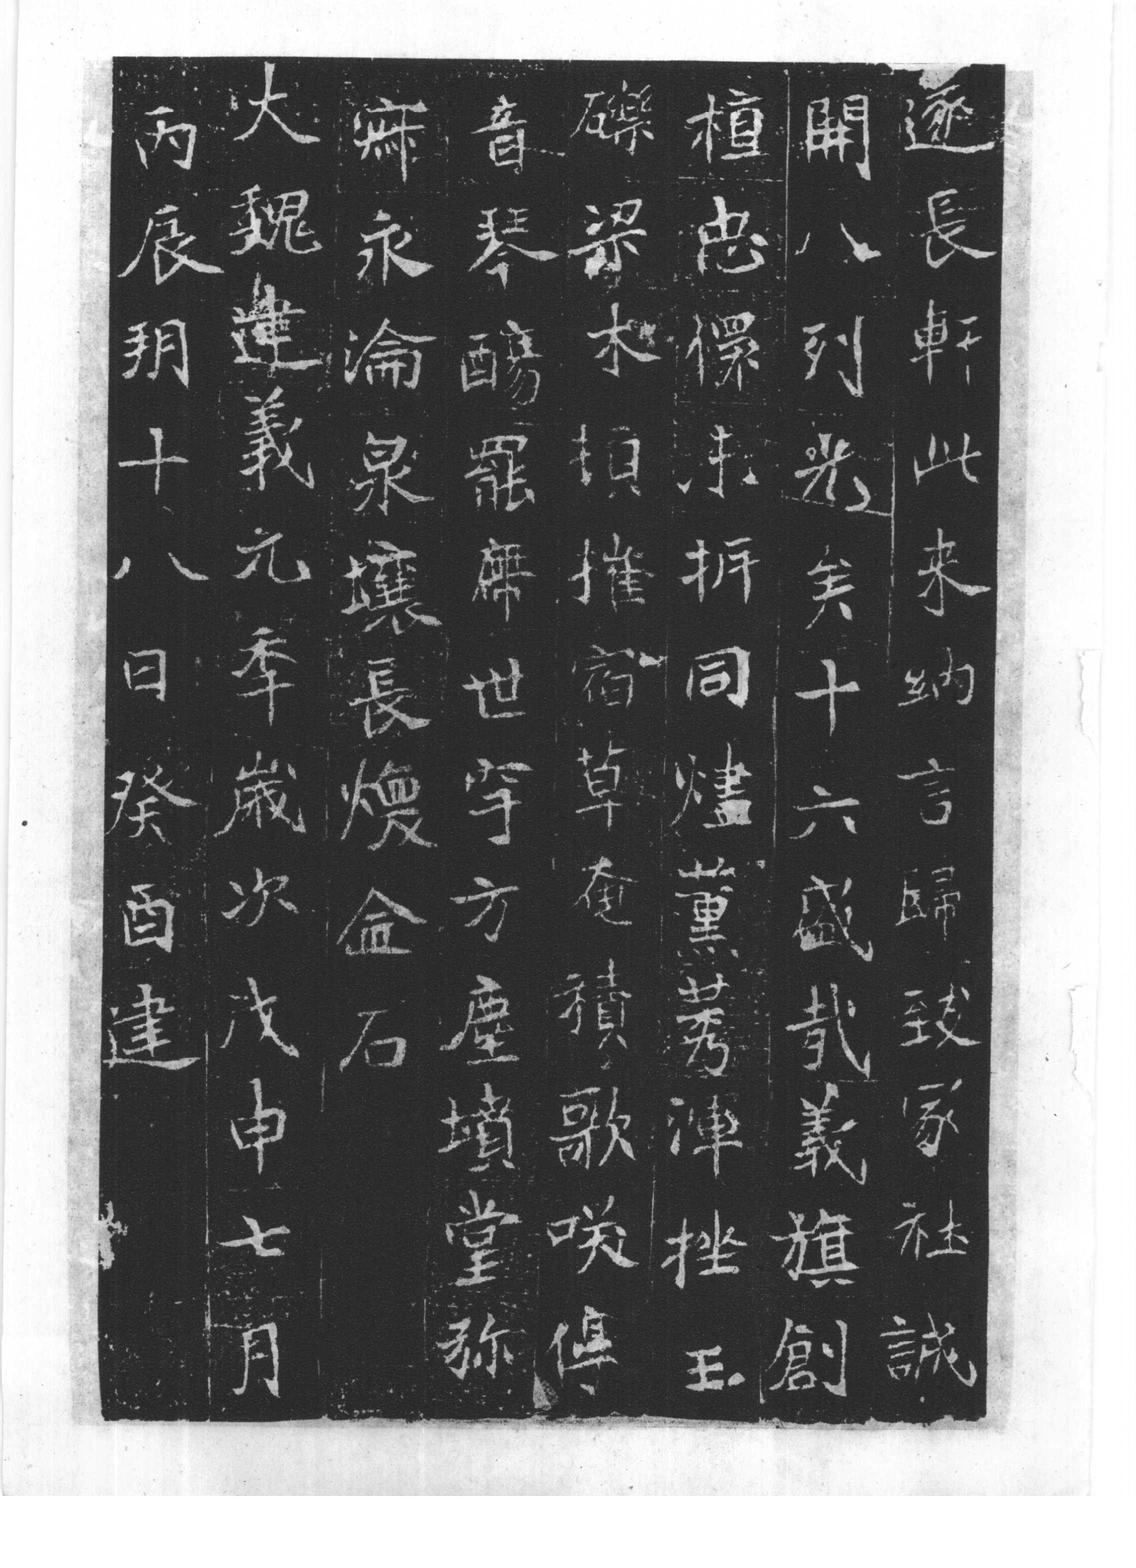 邃長軒此来納言歸致冡社誠
開八列光矣十六盛哉義旗創
植忠㒞未折同燼薰莠渾挫玉
礫梁木損摧宿草奄積歌咲停
音琴醻罷席世宇方塵墳堂弥
寐永淪泉壤長煥金石
大魏建義元季歲次戊申七月
丙辰朔十八日癸酉建